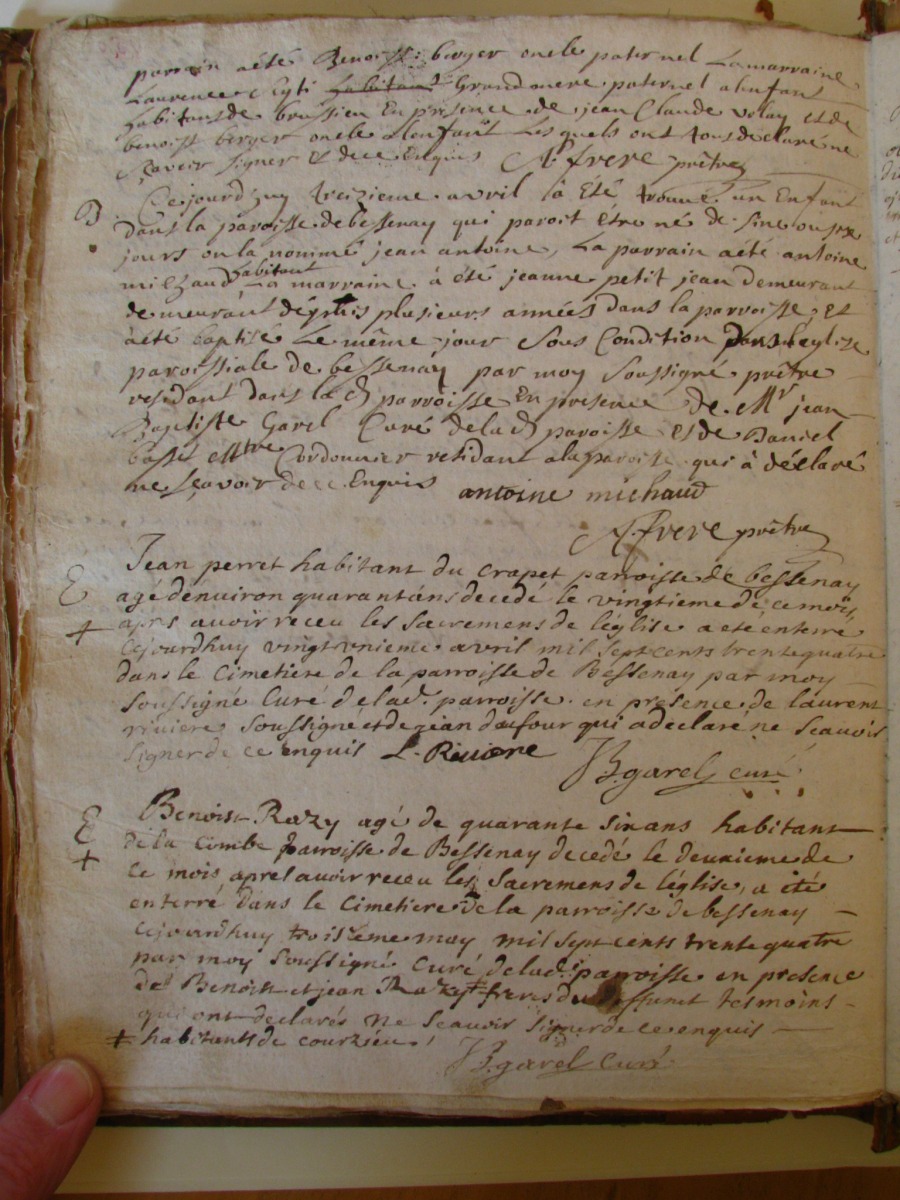 parrain aété Benoist berger oncle paternel La marraine
Laurence habitans Grandmere paternel alenfant
habitans de brussieu En présence de jean Claude volay et de
benoist berger oncle alenfant Lesquels ont tous déclaré ne
sçavoir signer et de ce Enquis A. frere prêtre
B Cejourdhuy treizieme avril à été trouvé un Enfant
dans la paroisse de bessenay qui paroit être né de sinc ou six
jours on la nommé jean antoine, La parrain aété antoine
michaud habitant La marraine à été jeanne petit jean demeurant
de meurant dépuis plusieurs années dans la parroisse, et
àété baptisé Le même jour sous Condition dans leglise
paroissiale de bessenay par moy soussigné prêtre
residant dans lad parroisse En présence de Mr jean
Baptiste Garel Curé delad paroisse et de Daniel
basset Mtre Cordonnier residant ala paroisse qui à déclaré
ne sçavoir de ce Enquis antoine michaud
A. frere prêtre
E Jean perret habitant du crapet parroisse de bessenay
agé denuiron quarant ans decedé le vingtieme de ce mois
+ aprs auoir receu les sacremens de léglise a eté enterré
cejourdhuy vingt vnieme avril mil sept cents trente quatre
dans le cimetiere de la parroisse de Bessenay par moy
soussigné Curé de lad. parroisse en présence de laurent
riviere soussigné et de jean dufour qui a declaré ne scauoir
signer de ce enquis L. Riuiere
JB garel curé
E Benoist Razy agé de quarante six ans habitant
+ de la Combe parroisse de Bessenay decedé le deuxieme de
ce mois apres auoir receu les sacremens de léglise, a été
enterré dans le Cimetiere de la parroisse de bessenay
cejourdhuy troisieme may mil sept cents trente quatre
par moy soussigné curé de lad. parroisse en presence
de Benoist et jean Razy + freres du deffunct tesmoins
qui ont declarés ne scauoir signer de ce enquis
+ habitants de courzieu,
JB garel curé